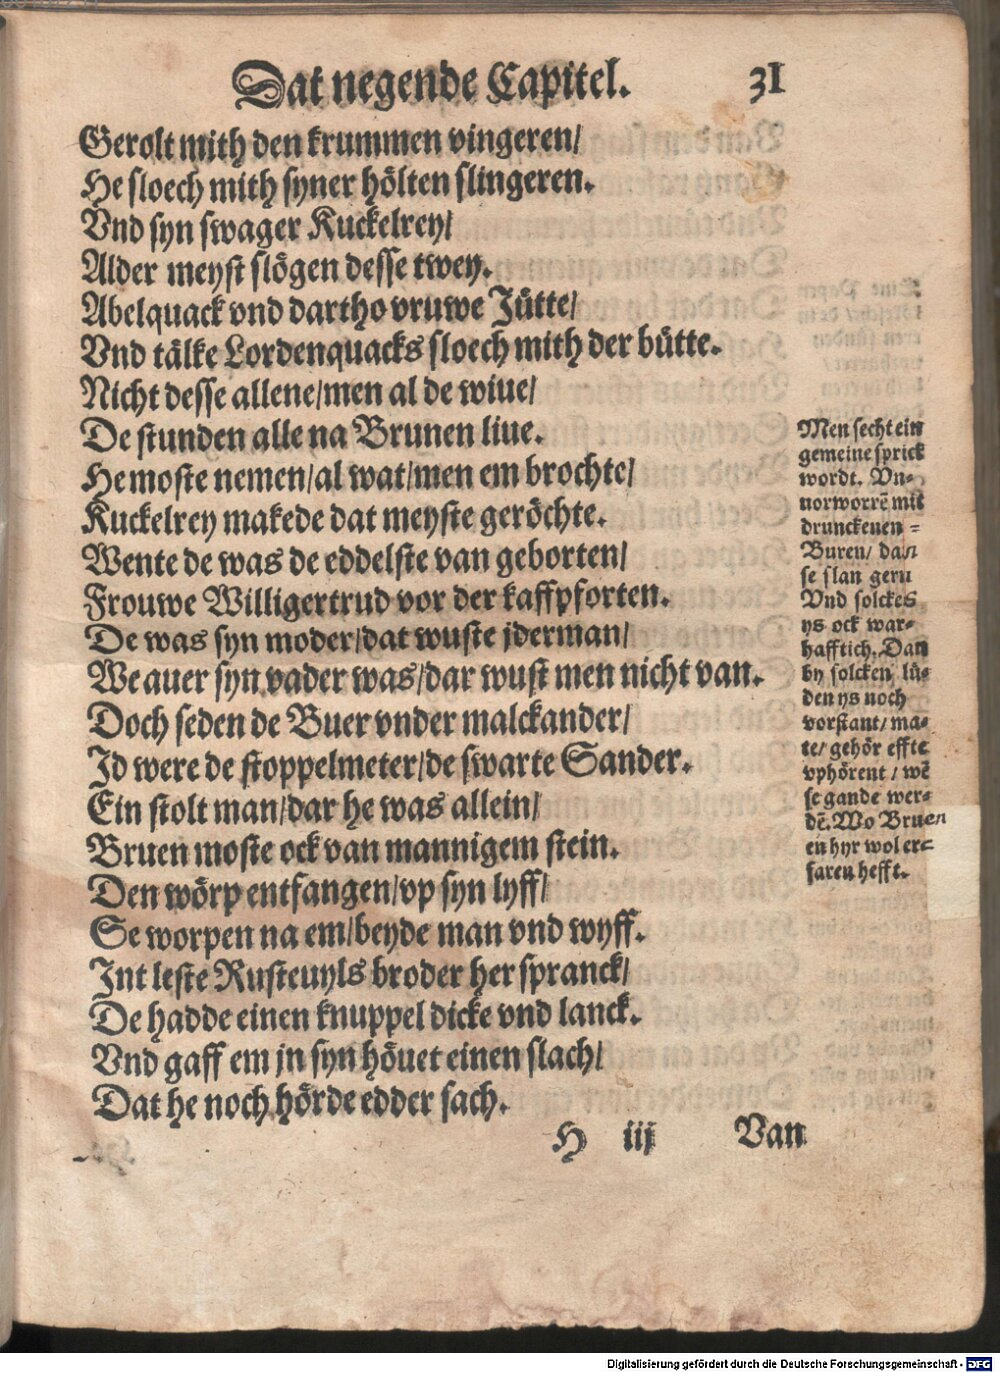 Dat negende Capitel. 31
Gerolt mith den krummen vingeren/
He sloech mith syner hölten slingeren.
Vnd syn swager Kuckelrey/
Alder meyst slögen desse twey.
Abelquack vnd dartho vruwe Jütte/
Vnd tälke Lordenquacks sloech mith der bütte.
Nicht desse allene/men al de wiue/
De stunden alle na Brunen liue.
He moste nemen/al wat/men em brochte/
Kuckelrey makede dat meyste geröchte.
Wente de was de eddelste van geborten/
Frouwe Willigertrud vor der kaffpforten.
De was syn moder/dat wuste jderman/
We auer syn vader was/dar wust men nicht van.
Doch seden de Buer vnder malckander/
Id were de stoppelmeter/de swarte Sander.
Ein stolt man/dar he was allein/
Bruen moste ock van mannigem stein.
Den wörp entfangen/vp syn lyff/
Se worpen na em/beyde man vnd wyff.
Int leste Rusteuyls broder her spranck/
De hadde einen knuppel dicke vnd lanck.
Vnd gaff em jn syn höuet einen slach/
Dat he noch hörde edder sach.
H iij Van
Men secht ein
gemeine sprick
wordt. Vn-
uorworrē mit
drunckenen =
Buren/ dan
se slan gern
Vnd solckes
ys ock war-
hafftich. Dan
by solcken lü-
den ys noch
vorstant/ ma-
te/ gehör effte
vphörent / wē
se gande wer-
dē. Wo Bruen
en hyr wol er-
faren hefft.
Digitalisierung gefördert durch die Deutsche Forschungsgemeinschaft - DFG